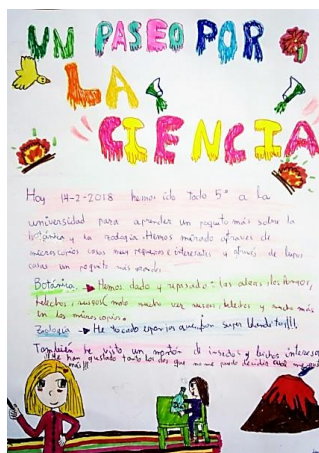 UN PASEO POR
LA
CIENCIA
Hoy 14-2-2018 hemos ido todo 5º a la
universidad para aprender un poquito más sobre la
botánica y la zoología. Hemos mirado através de
microscopios cosas muy pequeñas e interesantes y através de lupas
cosas un poquito más grandes.
Botánica → Hemos dado y repasado: las algas, los hongos,
helechos, musgos mola mucho ver musgos, helechos y mucho más
en los microscopios.
Zoología → He tocado esponjas que son super blanditas!!!!
También he visto un montón de insectos y bichos
me han gustado tanto los dos que no me puedo decidir cuál me
más!!!